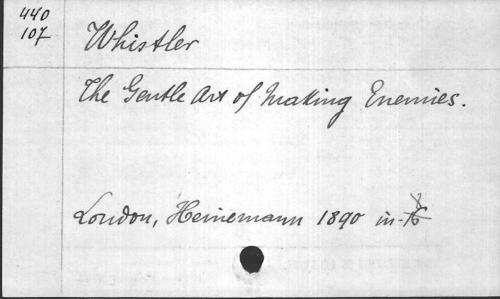 440
107
Whistler
The Gentle Art of Making Enemies.
London, Heinemann 1890 in-8